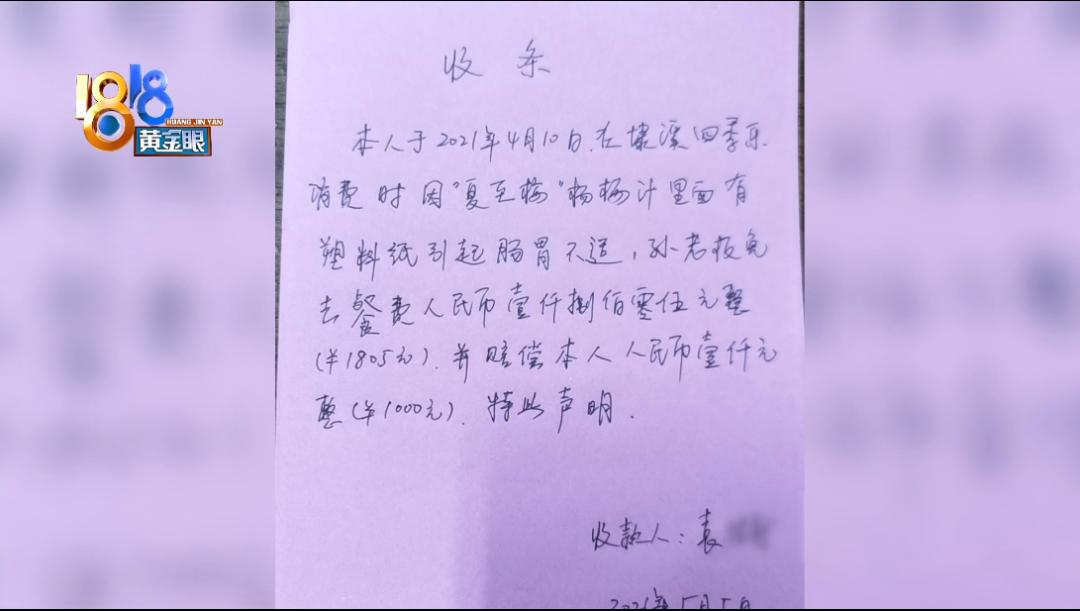 1818
HUANG JIN YAN
黄金眼
收条
本人于2021年4月10日.在塘溪四季乐
消费时因"夏至梅"杨梅汁里面有
塑料纸引起肠胃不适,孙老板免
去餐费人民币壹仟捌佰零伍元整
(¥1805元).并赔偿本人人民币壹仟元
整(¥1000元).特此声明.
收款人:袁
2021年5月5日